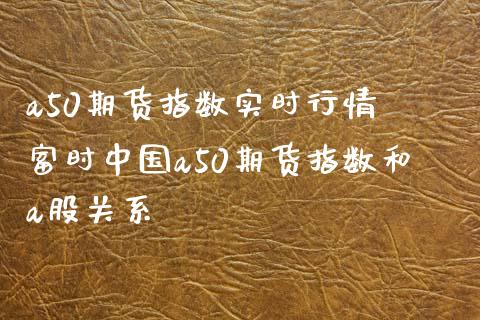 a50期货指数实时行情
富时中国a50期货指数和
a股关系